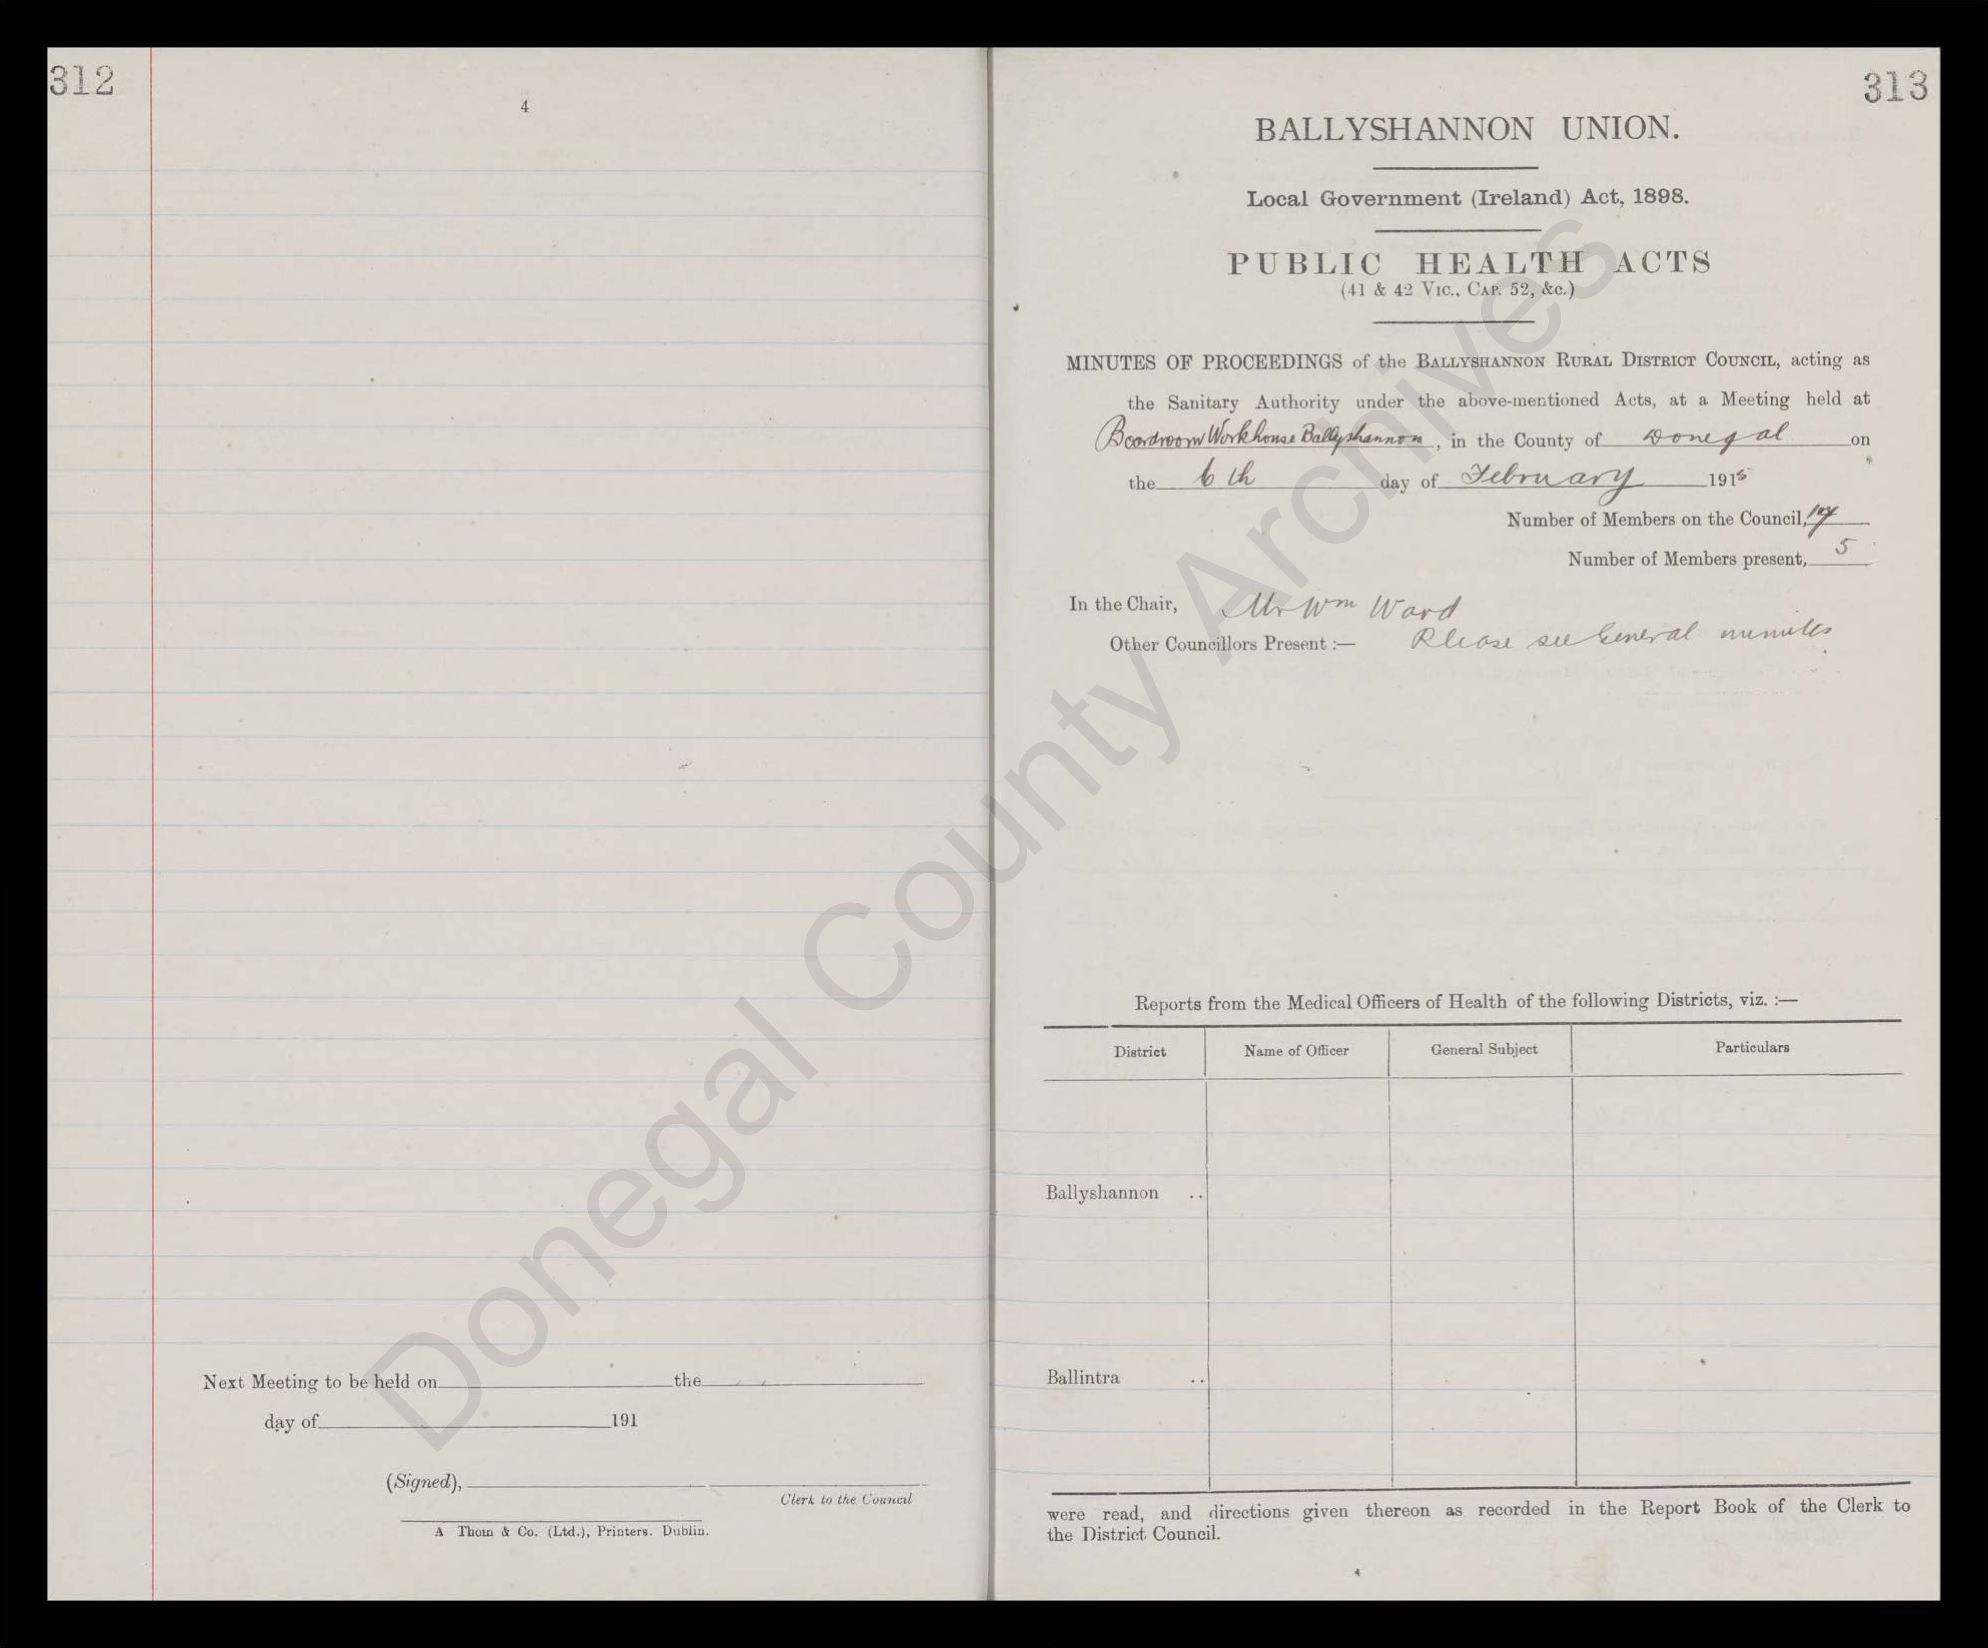 312
4
Next Meeting to be held on the
day of 191
(Signed),
Clerk to the Council
A Thom & Co. (Ltd.), Printers. Dublin.
313
BALLYSHANNON UNION.
Local Government (Ireland) Act, 1898.
PUBLIC HEALTH ACTS
(41 & 42 VIC., CAP. 52, &c.)
MINUTES OF PROCEEDINGS of the BALLYSHANNON RURAL DISTRICT COUNCIL, acting as
the Sanitary Authority under the above-mentioned Acts, at a Meeting held at
Boardroom Workhouse Ballyshannon, in the County of Donegal on
the 6th day of February 1915
Number of Members on the Council, 17
Number of Members present, 5
In the Chair, Mr Wm Ward
Other Councillors Present :— Please see General minutes
Reports from the Medical Officers of Health of the following Districts, viz. :—
District Name of Officer General Subject Particulars
Ballyshannon ..
Ballintra ..
were read, and directions given thereon as recorded in the Report Book of the Clerk to
the District Council.
Donegal County Archives